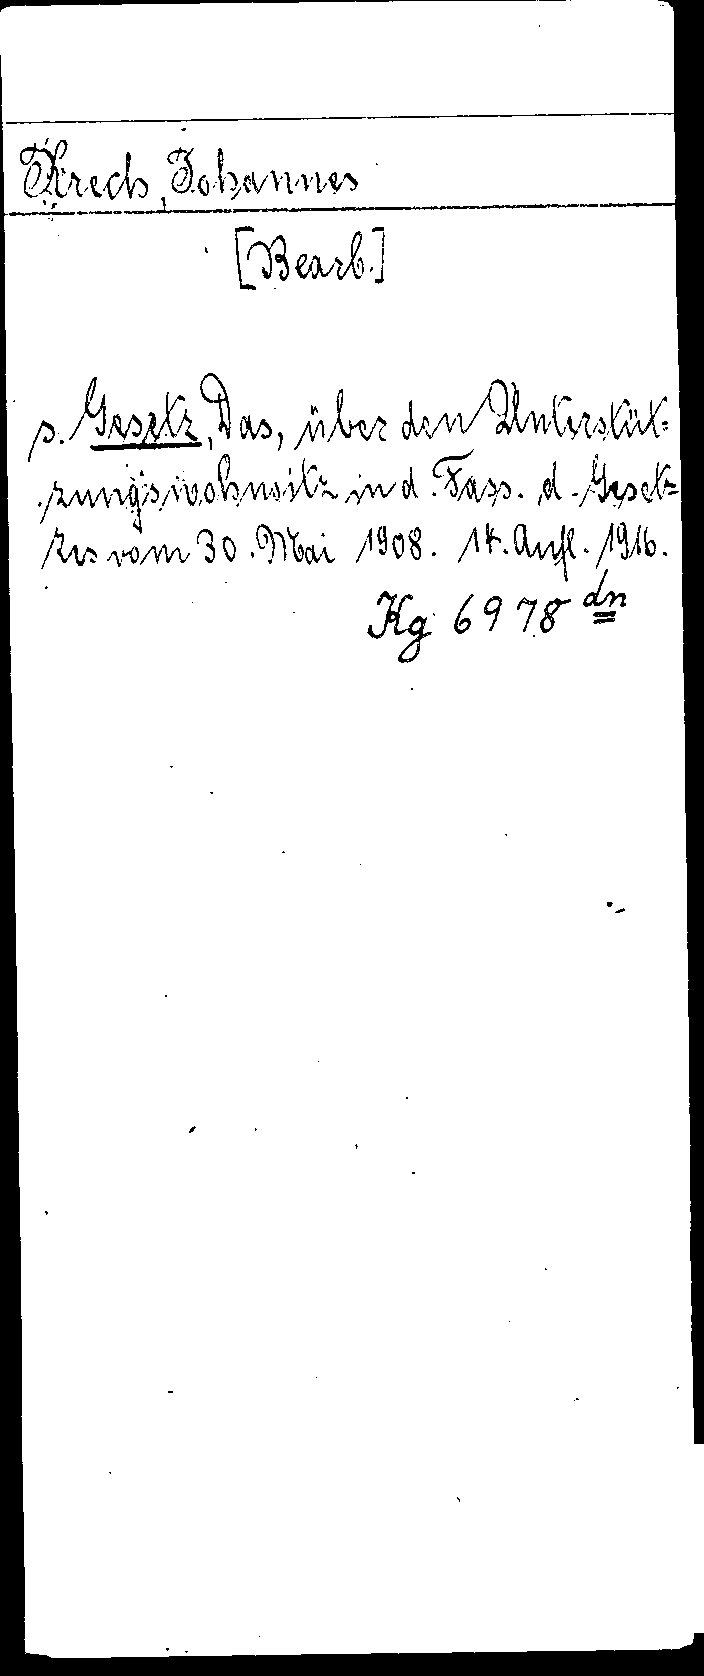 Krech, Johannes
[Bearb.]
s. Gesetz, Das, über den Unterstüt=
zungswohnsitz in d. Fass. d. Geset=
zes vom 30. Mai 1908. 14. Aufl. 1916.
Kg 6978 dn